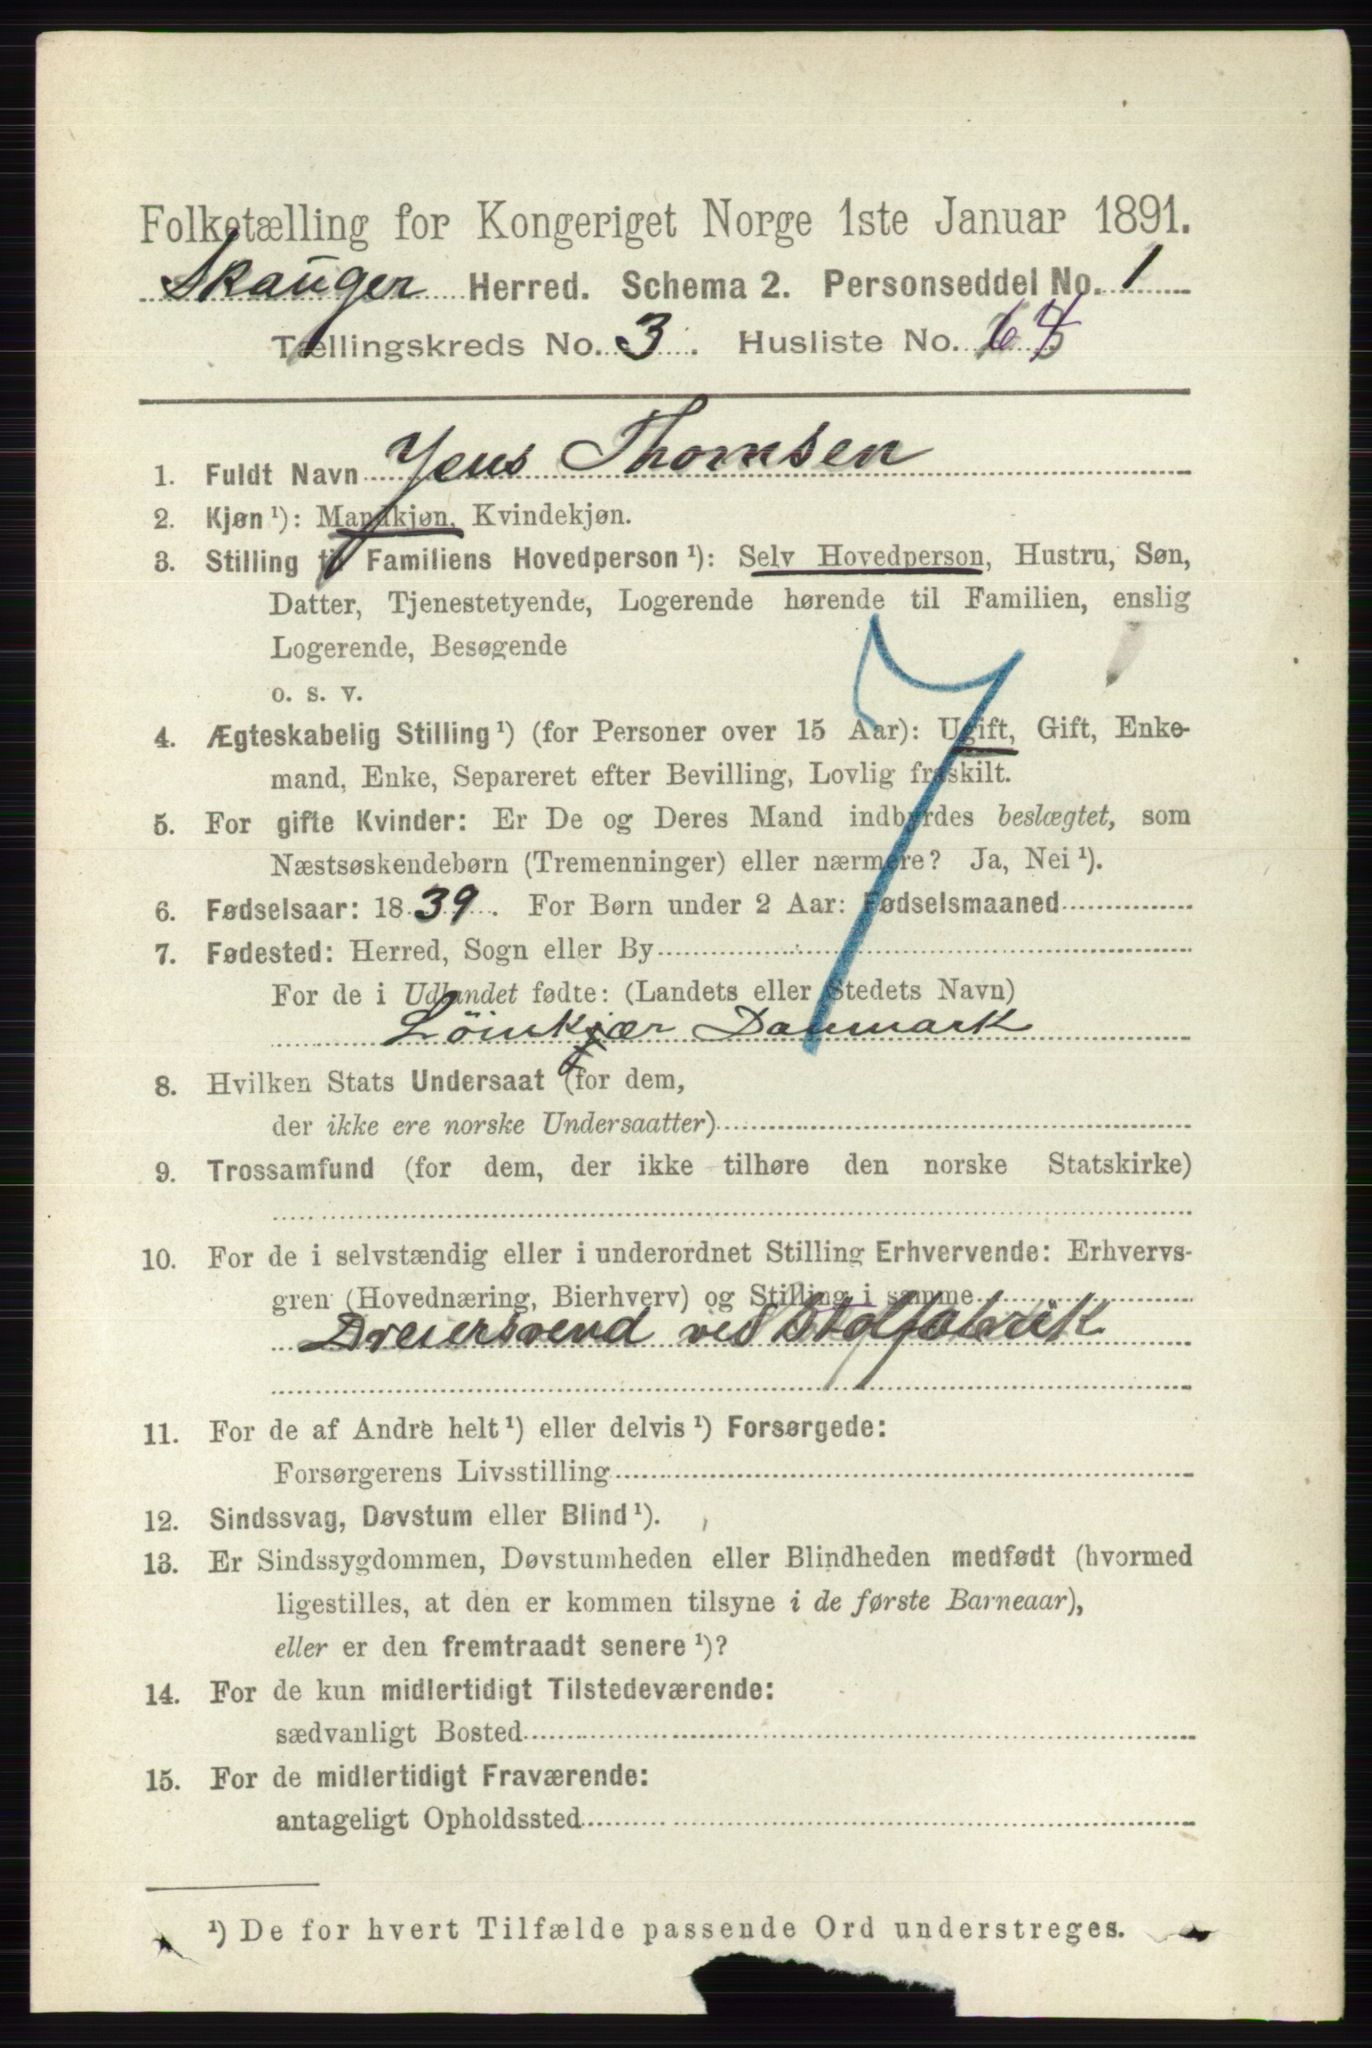 Folketælling for Kongeriget Norge 1ste Januar 1891.
Skauger Herred. Schema 2. Personseddel No. 1
Tællingskreds No. 3. Husliste No. 64
1. Fuldt Navn Jens Thomsen
2. Kjøn ¹): Mandkjøn, Kvindekjøn.
3. Stilling til Familiens Hovedperson ¹): Selv Hovedperson, Hustru, Søn,
Datter, Tjenestetyende, Logerende hørende til Familien, enslig
Logerende, Besøgende
o. s. v.
4. Ægteskabelig Stilling ¹) (for Personer over 15 Aar): Ugift, Gift, Enke-
mand, Enke, Separeret efter Bevilling, Lovlig fraskilt.
5. For gifte Kvinder: Er De og Deres Mand indbyrdes beslægtet, som
Næstsøskendebørn (Tremenninger) eller nærmere? Ja, Nei ¹).
6. Fødselsaar: 1839. For Børn under 2 Aar: Fødselsmaaned
7. Fødested: Herred, Sogn eller By
For de i Udlandet fødte: (Landets eller Stedets Navn)
Löinkjær Danmark
8. Hvilken Stats Undersaat (for dem,
der ikke ere norske Undersaatter)
9. Trossamfund (for dem, der ikke tilhøre den norske Statskirke)
10. For de i selvstændig eller i underordnet Stilling Erhvervende: Erhvervs-
gren (Hovednæring, Bierhverv) og Stilling i samme
Dreiersvend ved Stolfabrik
11. For de af Andre helt ¹) eller delvis ¹) Forsørgede:
Forsørgerens Livsstilling
12. Sindssvag, Døvstum eller Blind ¹).
13. Er Sindssygdommen, Døvstumheden eller Blindheden medfødt (hvormed
ligestilles, at den er kommen tilsyne i de første Barneaar),
eller er den fremtraadt senere ¹)?
14. For de kun midlertidigt Tilstedeværende:
sædvanligt Bosted
15. For de midlertidigt Fraværende:
antageligt Opholdssted
¹) De for hvert Tilfælde passende Ord understreges.
7